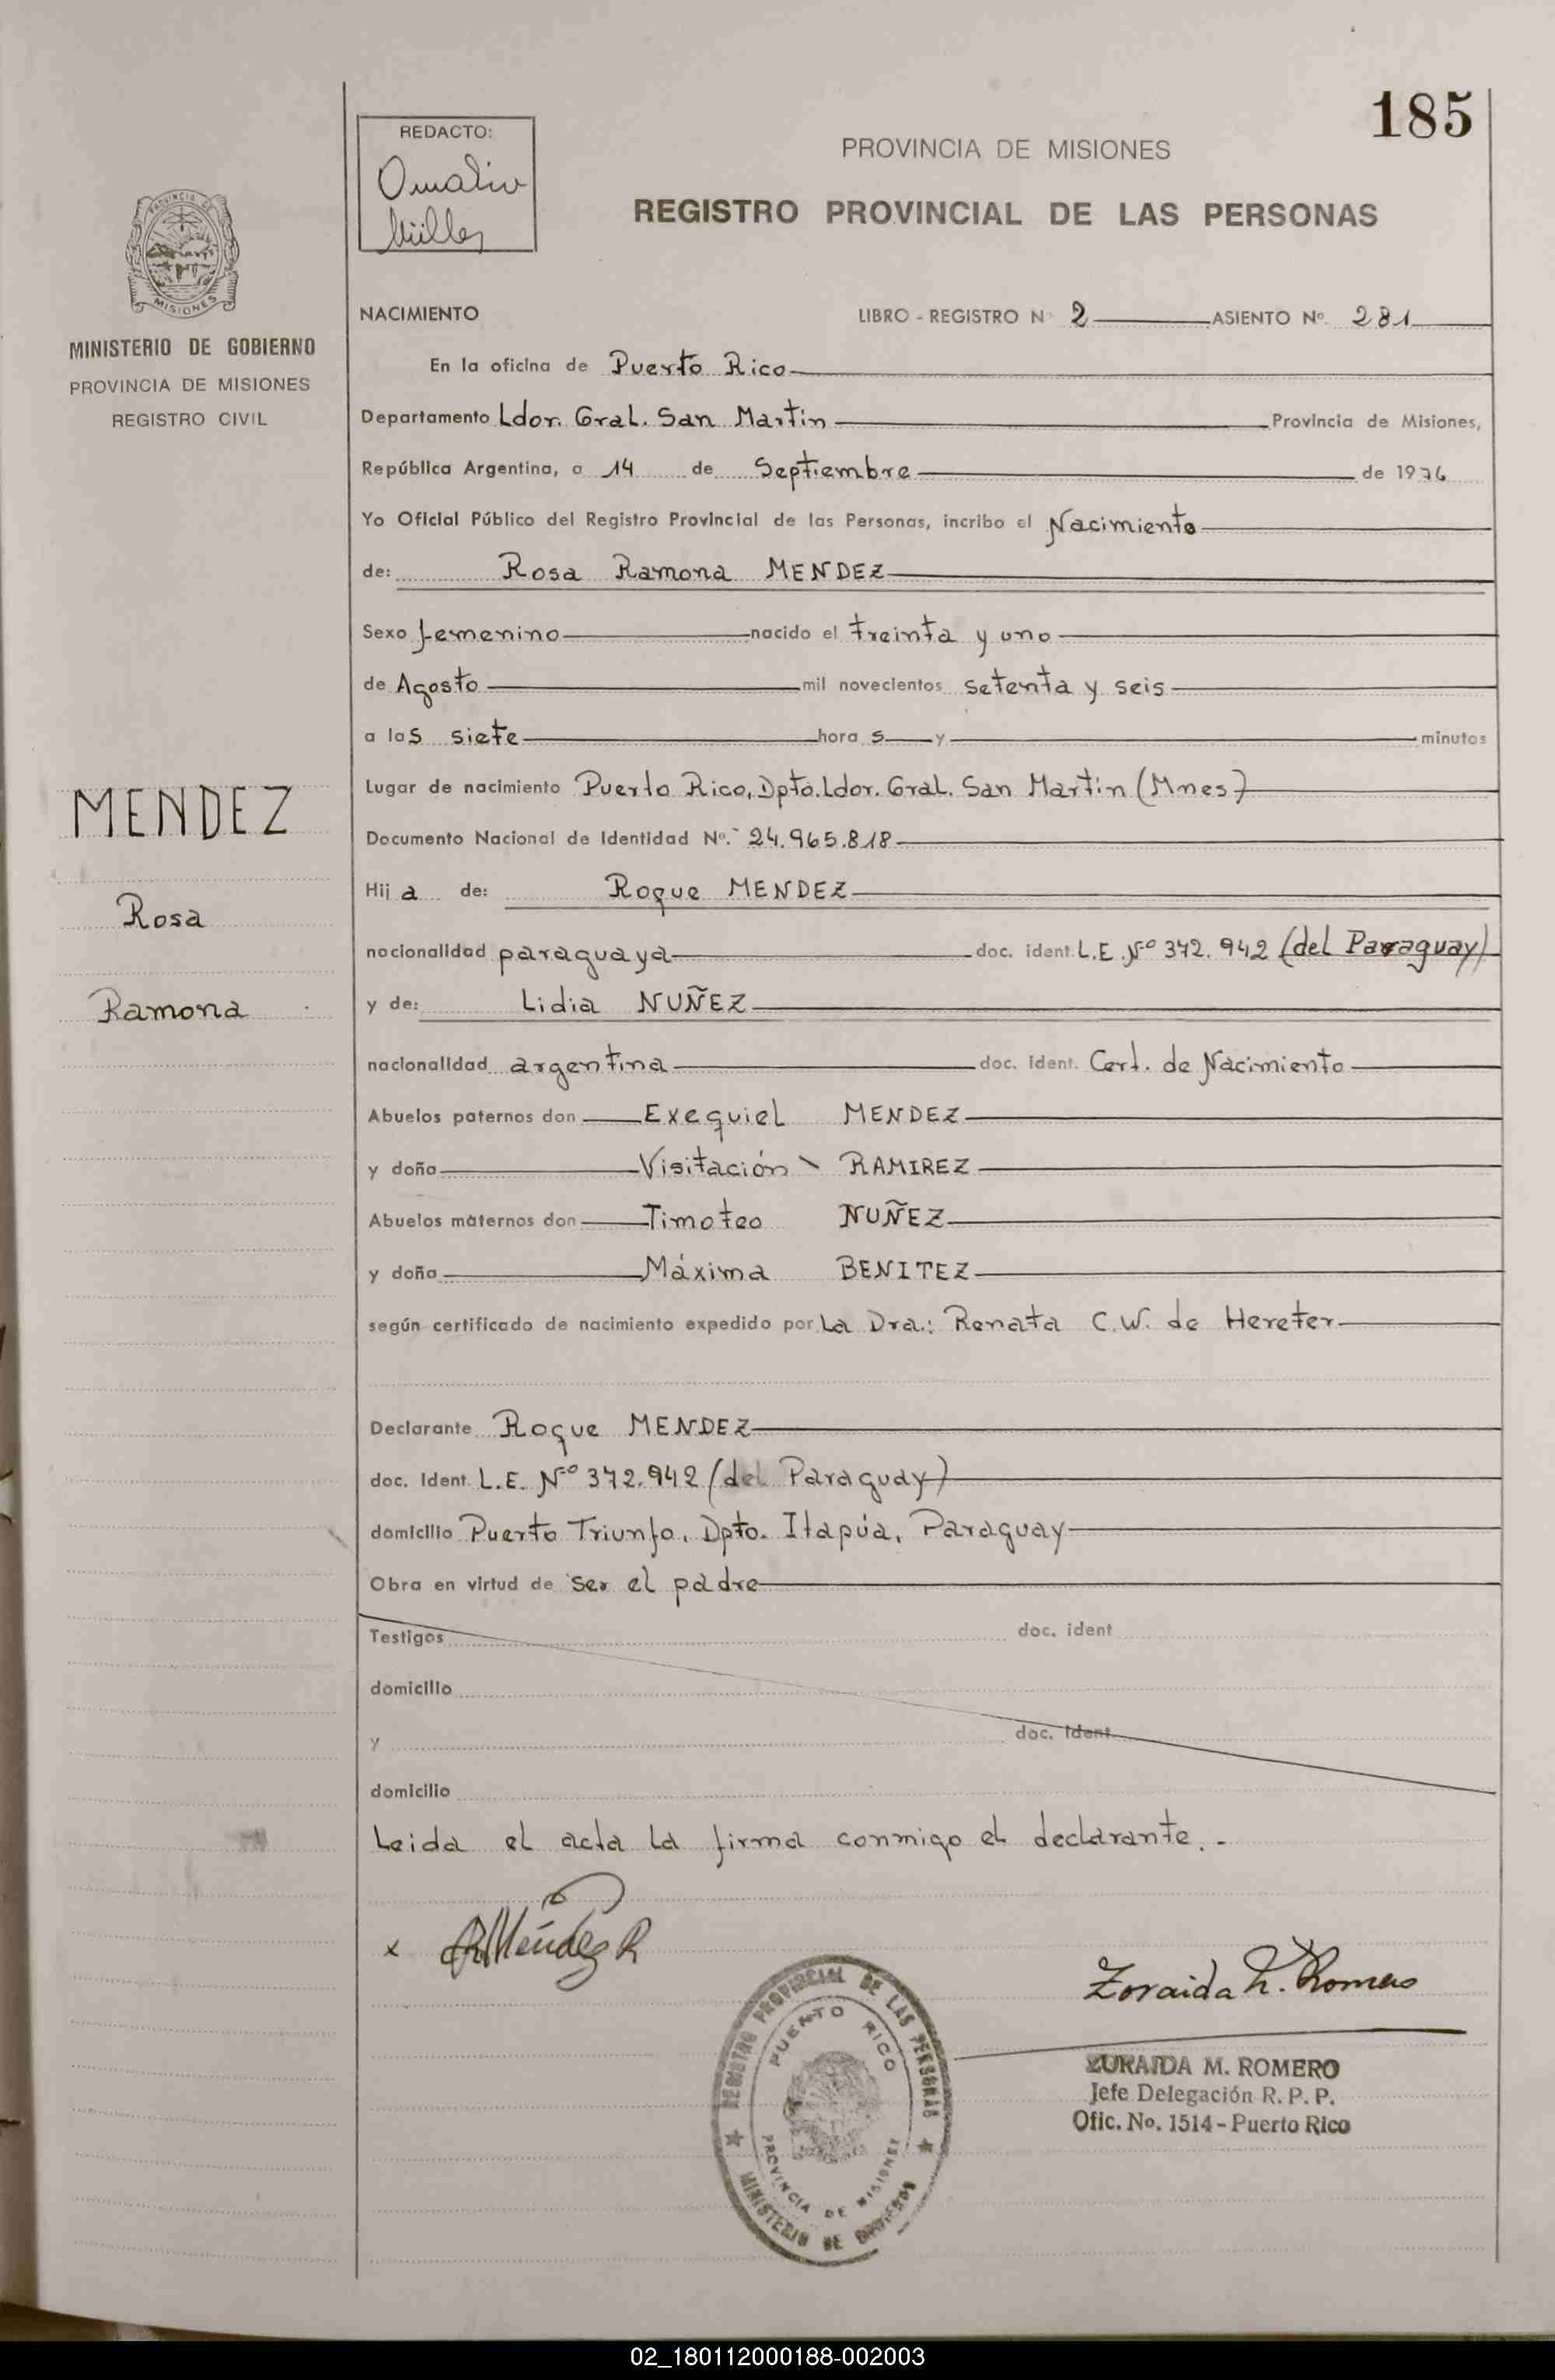 185
REDACTO:
Müller
PROVINCIA DE MISIONES
REGISTRO PROVINCIAL DE LAS PERSONAS
PROVINCIA DE
MISIONES
MINISTERIO DE GOBIERNO
PROVINCIA DE MISIONES
REGISTRO CIVIL
NACIMIENTO LIBRO - REGISTRO Nº 2 ASIENTO Nº. 281
En la oficina de Puerto Rico
Departamento Ldor. Gral. San Martin Provincia de Misiones,
República Argentina, a 14 de Septiembre de 1976
Yo Oficial Público del Registro Provincial de las Personas, incribo el Nacimiento
de: Rosa Ramona MENDEZ
Sexo femenino nacido el treinta y uno
de Agosto mil novecientos setenta y seis
a las siete horas y minutos
Lugar de nacimiento Puerto Rico, Dpto. Ldor. Gral. San Martin (Mnes)
Documento Nacional de Identidad Nº. 24.965.818
Hija de: Roque MENDEZ
nacionalidad paraguaya doc. ident. L.E. Nº 372.942 (del Paraguay)
y de: Lidia NUÑEZ
nacionalidad argentina doc. ident. Cert. de Nacimiento
Abuelos paternos don Exequiel MENDEZ
y doña Visitación RAMIREZ
Abuelos maternos don Timoteo NUÑEZ
y doña Máxima BENITEZ
según certificado de nacimiento expedido por La Dra.: Renata C.W. de Hereter
Declarante Roque MENDEZ
doc. Ident. L.E. Nº 372.942 (del Paraguay)
domicilio Puerto Triunfo, Dpto. Itapúa, Paraguay
Obra en virtud de ser el padre
Testigos doc. ident
domicilio
y doc. ident
domicilio
Leida el acta la firma conmigo el declarante.-
MENDEZ
Rosa
Ramona
x RMéndez R
Zoraida M. Romero
ZORAIDA M. ROMERO
Jefe Delegación R. P. P.
Ofic. No. 1514 - Puerto Rico
REGISTRO PROVINCIAL DE LAS PERSONAS
PUERTO RICO
PROVINCIA DE MISIONES
MINISTERIO DE GOBIERNO
02_180112000188-002003